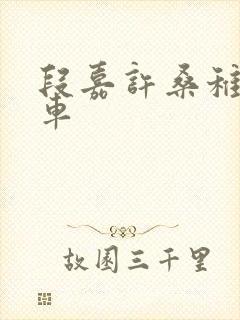 段嘉許桑稚
車
故園三千里